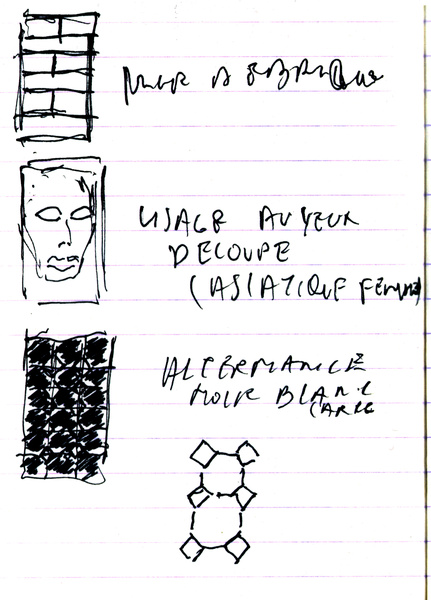 MUR
VISAGE AU YEUX
DECOUPE
(ASIATIQUE FEMME)
ALTERNANCE
NOIR BLANC
CARRE